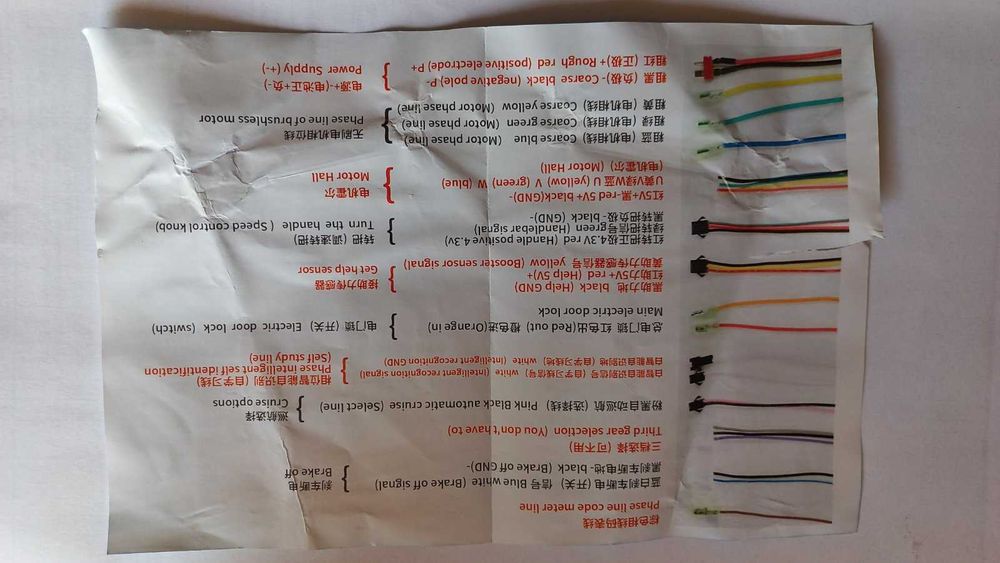 棕色相线码表线
Phase line code meter line
蓝白刹车断电(开关) 信号 Blue white (Brake off signal)
黑刹车断电地- black (Brake off GND)-
刹车断电
Brake off
三档选择 (可不用)
Third gear selection (You don't have to)
粉黑自动巡航 (选择线) Pink Black automatic cruise (Select line)
巡航选择
Cruise options
白智能自识别信号 (自学习线信号) white (Intelligent recognition signal)
白智能自识别地 (自学习线地) white (Intelligent recognition GND)
相位智能自识别 (自学习线)
Phase intelligent self identification
(Self study line)
总电门锁 红色出(Red out) 橙色进(Orange in)
Main electric door lock
电门锁 (开关) Electric door lock (switch)
黑助力 地 black (Help GND)
红助力+5V+ red (Help 5V)+
黄助力传感器 信号 yellow (Booster sensor signal)
接助力传感器
Get help sensor
红转把正极4.3V red (Handle positive 4.3v)
绿转把信号 green (Handlebar signal)
黑转把负极- black (GND)-
转把 (调速转把)
Turn the handle (Speed control knob)
红5V+黑-red +5V black(GND)-
U黄V绿W蓝 U (yellow) V (green) W (blue)
(电机霍尔) (Motor Hall)
电机霍尔
Motor Hall
粗蓝 (电机相线) Coarse blue (Motor phase line)
粗绿 (电机相线) Coarse green (Motor phase line)
粗黄 (电机相线) Coarse yellow (Motor phase line)
无刷电机相位线
Phase line of brushless motor
粗黑 (负极)- Coarse black (negative pole) P-
粗红 (正极)+ Rough red (positive electrode) P+
电源+-(电池正+负-)
Power Supply (+-)